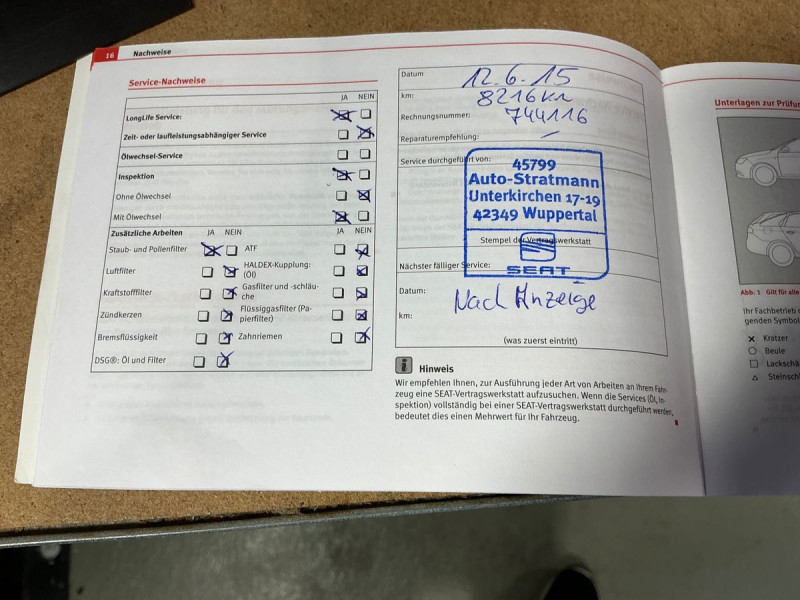 16 Nachweise
Service-Nachweise
JA NEIN
LongLife Service:
Zeit- oder laufleistungsabhängiger Service
Ölwechsel-Service
Inspektion
Ohne Ölwechsel
Mit Ölwechsel
Zusätzliche Arbeiten JA NEIN
JA NEIN
Staub- und Pollenfilter
ATF
Luftfilter
HALDEX-Kupplung:
(Öl)
Kraftstofffilter
Gasfilter und -schläu-
che
Zündkerzen
Flüssiggasfilter (Pa-
pierfilter)
Bremsflüssigkeit
Zahnriemen
DSG®: Öl und Filter
Datum 12.6.15
km: 8216km
Rechnungsnummer: 744116
Reparaturempfehlung: –
Service durchgeführt von:
45799
Auto-Stratmann
Unterkirchen 17-19
42349 Wuppertal
Stempel der Vertragswerkstatt
SEAT
Nächster fälliger Service:
Datum: Nach Anzeige
km:
(was zuerst eintritt)
i Hinweis
Wir empfehlen Ihnen, zur Ausführung jeder Art von Arbeiten an Ihrem Fahr-
zeug eine SEAT-Vertragswerkstatt aufzusuchen. Wenn die Services (Öl, In-
spektion) vollständig bei einer SEAT-Vertragswerkstatt durchgeführt werden,
bedeutet dies einen Mehrwert für Ihr Fahrzeug.
Unterlagen zur
Abb. 1 Gilt für alle
Ihr Fachbetrieb
genden
Kratzer
Beule